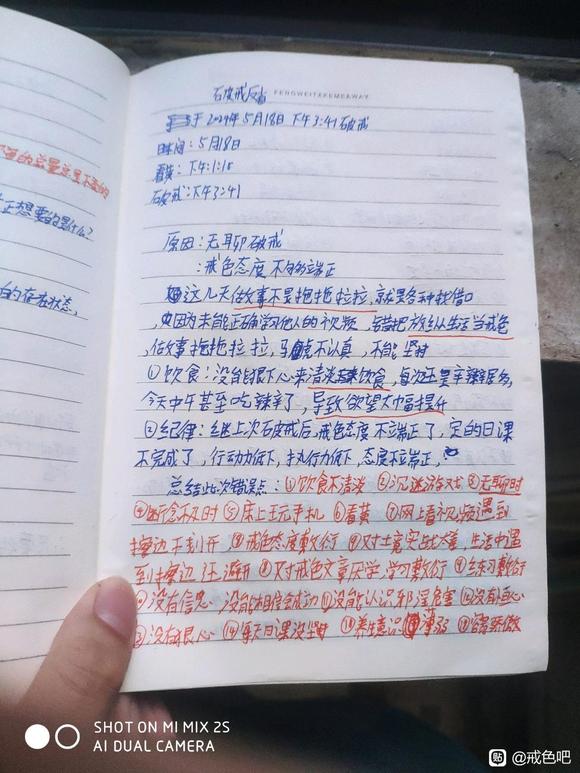 破戒反省 FENGWEITAKEMEAWAY
于2024年5月18日下午3:41破戒
时间:5月18日
看黄:下午:1:15
破戒:下午3:41
原因:无聊破戒
:戒色态度不够端正
这几天做事不是拖拖拉拉,就是各种找借口
,因为未能正确学习他人的视频,错把放纵生活当戒色
,做事拖拖拉拉,马虎不认真,不能坚持
①饮食:没能狠下心来清淡饮食,每次还是辛辣居多,
今天中午甚至吃辣辛了,导致欲望大幅提升
②纪律:继上次破戒后,戒色态度不端正了,定的日课
不完成了,行动力低下,执行力低下,态度不端正,
总结此次错误点:①饮食不清淡 ②沉迷游戏 ③无聊时
④断念不及时 ⑤床上玩手机 ⑥看黄 ⑦网上看视频遇到
擦边不划开,⑧戒色态度敷衍 ⑨对境实战太差,生活中遇
到擦边不避开 ⑧对戒色文章厌学,学习敷衍 ⑨练习敷衍
⑩没有信念,没能相信会成功 ⑪没能认识邪淫危害 ⑫没有恒心
⑬没有狠心 ⑭每天日课没坚持 ⑮养生意识薄弱 ⑯容易骄傲
的存在状态,
SHOT ON MI MIX 2S
AI DUAL CAMERA
贴 @戒色吧